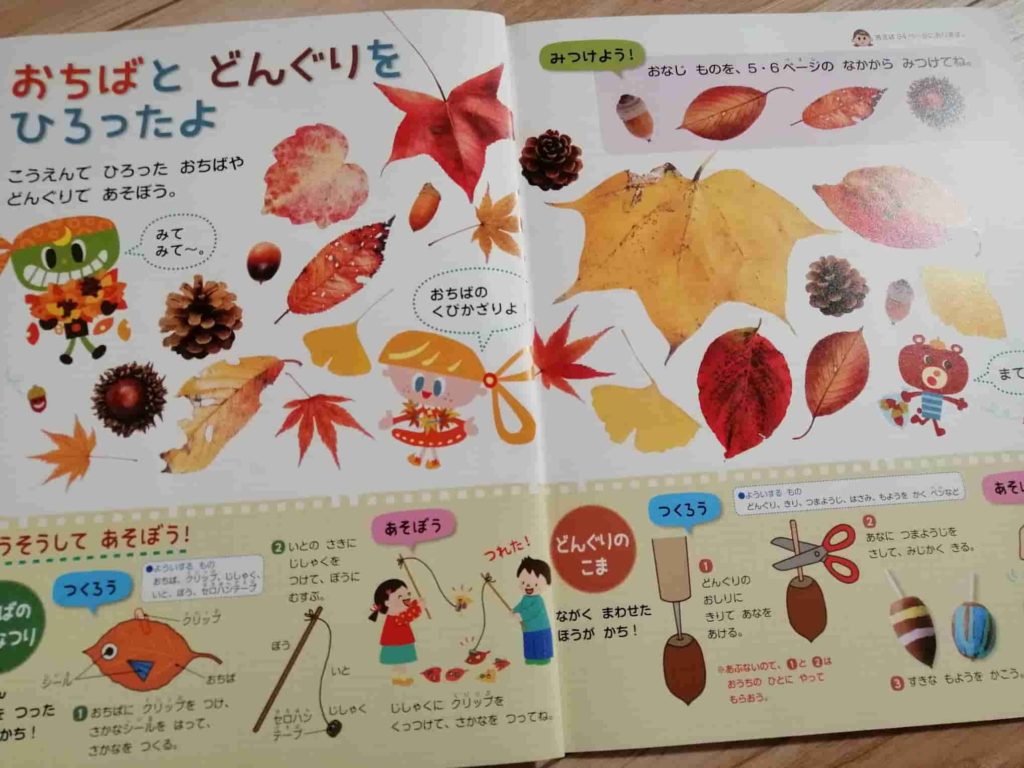 おちばと どんぐりを
ひろったよ
こうえんで ひろった おちばや
どんぐりで あそぼう。
みて
みて〜。
おちばの
くびかざりよ
みつけよう!
おなじ ものを、5・6ページの なかから みつけてね。
まて
うそうして あそぼう!
ばの
なつり
つくろう
●よういする もの
おちば、クリップ、じしゃく、
いと、ぼう、セロハンテープ
クリップ
シール
おちば
つった
かち!
❶おちばに クリップを つけ、
さかなシールを はって、
さかなを つくる。
❷いとの さきに
じしゃくを
つけて、ぼうに
むすぶ。
ぼう
いと
セロハン
テープ
じしゃく
あそぼう
つれた!
じしゃくに クリップを
くっつけて、さかなを つってね。
どんぐりの
こま
ながく まわせた
ほうが かち!
つくろう
●よういする もの
どんぐり、きり、つまようじ、はさみ、もようを かく ペンなど
❶
どんぐりの
おしりに
きりで あなを
あける。
❷
あなに つまようじを
さして、みじかく きる。
※あぶないので、❶と ❷は
おうちの ひとに やって
もらおう。
❸すきな もようを かこう。